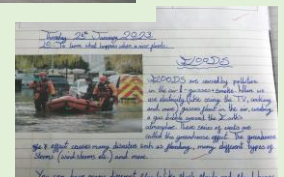 2023
LO: To learn what happens when a river floods.
FLOODS
FLOODS are caused by pollution
in the air & gasses + smoke. When we
use electricity (like using the TV, cooking
and more) gasses float in the air, making
a gas bubble around the Earth's
atmosphere, these series of events are
called the greenhouse effect. The greenhouse
effect causes many disasters such as flooding, many different types of
storms (wind storms etc) and more.
You can have many different